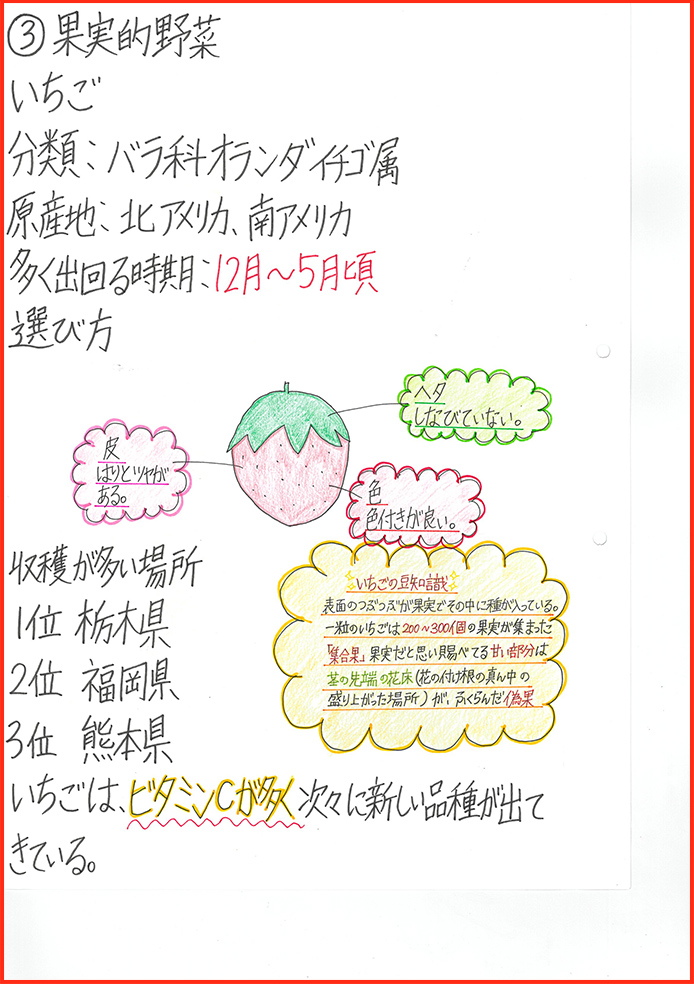 ③果実的野菜
いちご
分類：バラ科オランダイチゴ属
原産地：北アメリカ、南アメリカ
多く出回る時期：12月～5月頃
選び方
ヘタ
しなびていない。
皮
はりとツヤが
ある。
色
色付きが良い。
収穫が多い場所
1位 栃木県
2位 福岡県
3位 熊本県
いちごの豆知識
表面のつぶつぶが果実でその中に種が入っている。
一粒のいちごは200～300個の果実が集まった
「集合果」果実だと思い食べてる甘い部分は
茎の先端の花床(花の付け根の真ん中の
盛り上がった場所)が、ふくらんだ偽果
いちごは、ビタミンCが多く次々に新しい品種が出て
きている。